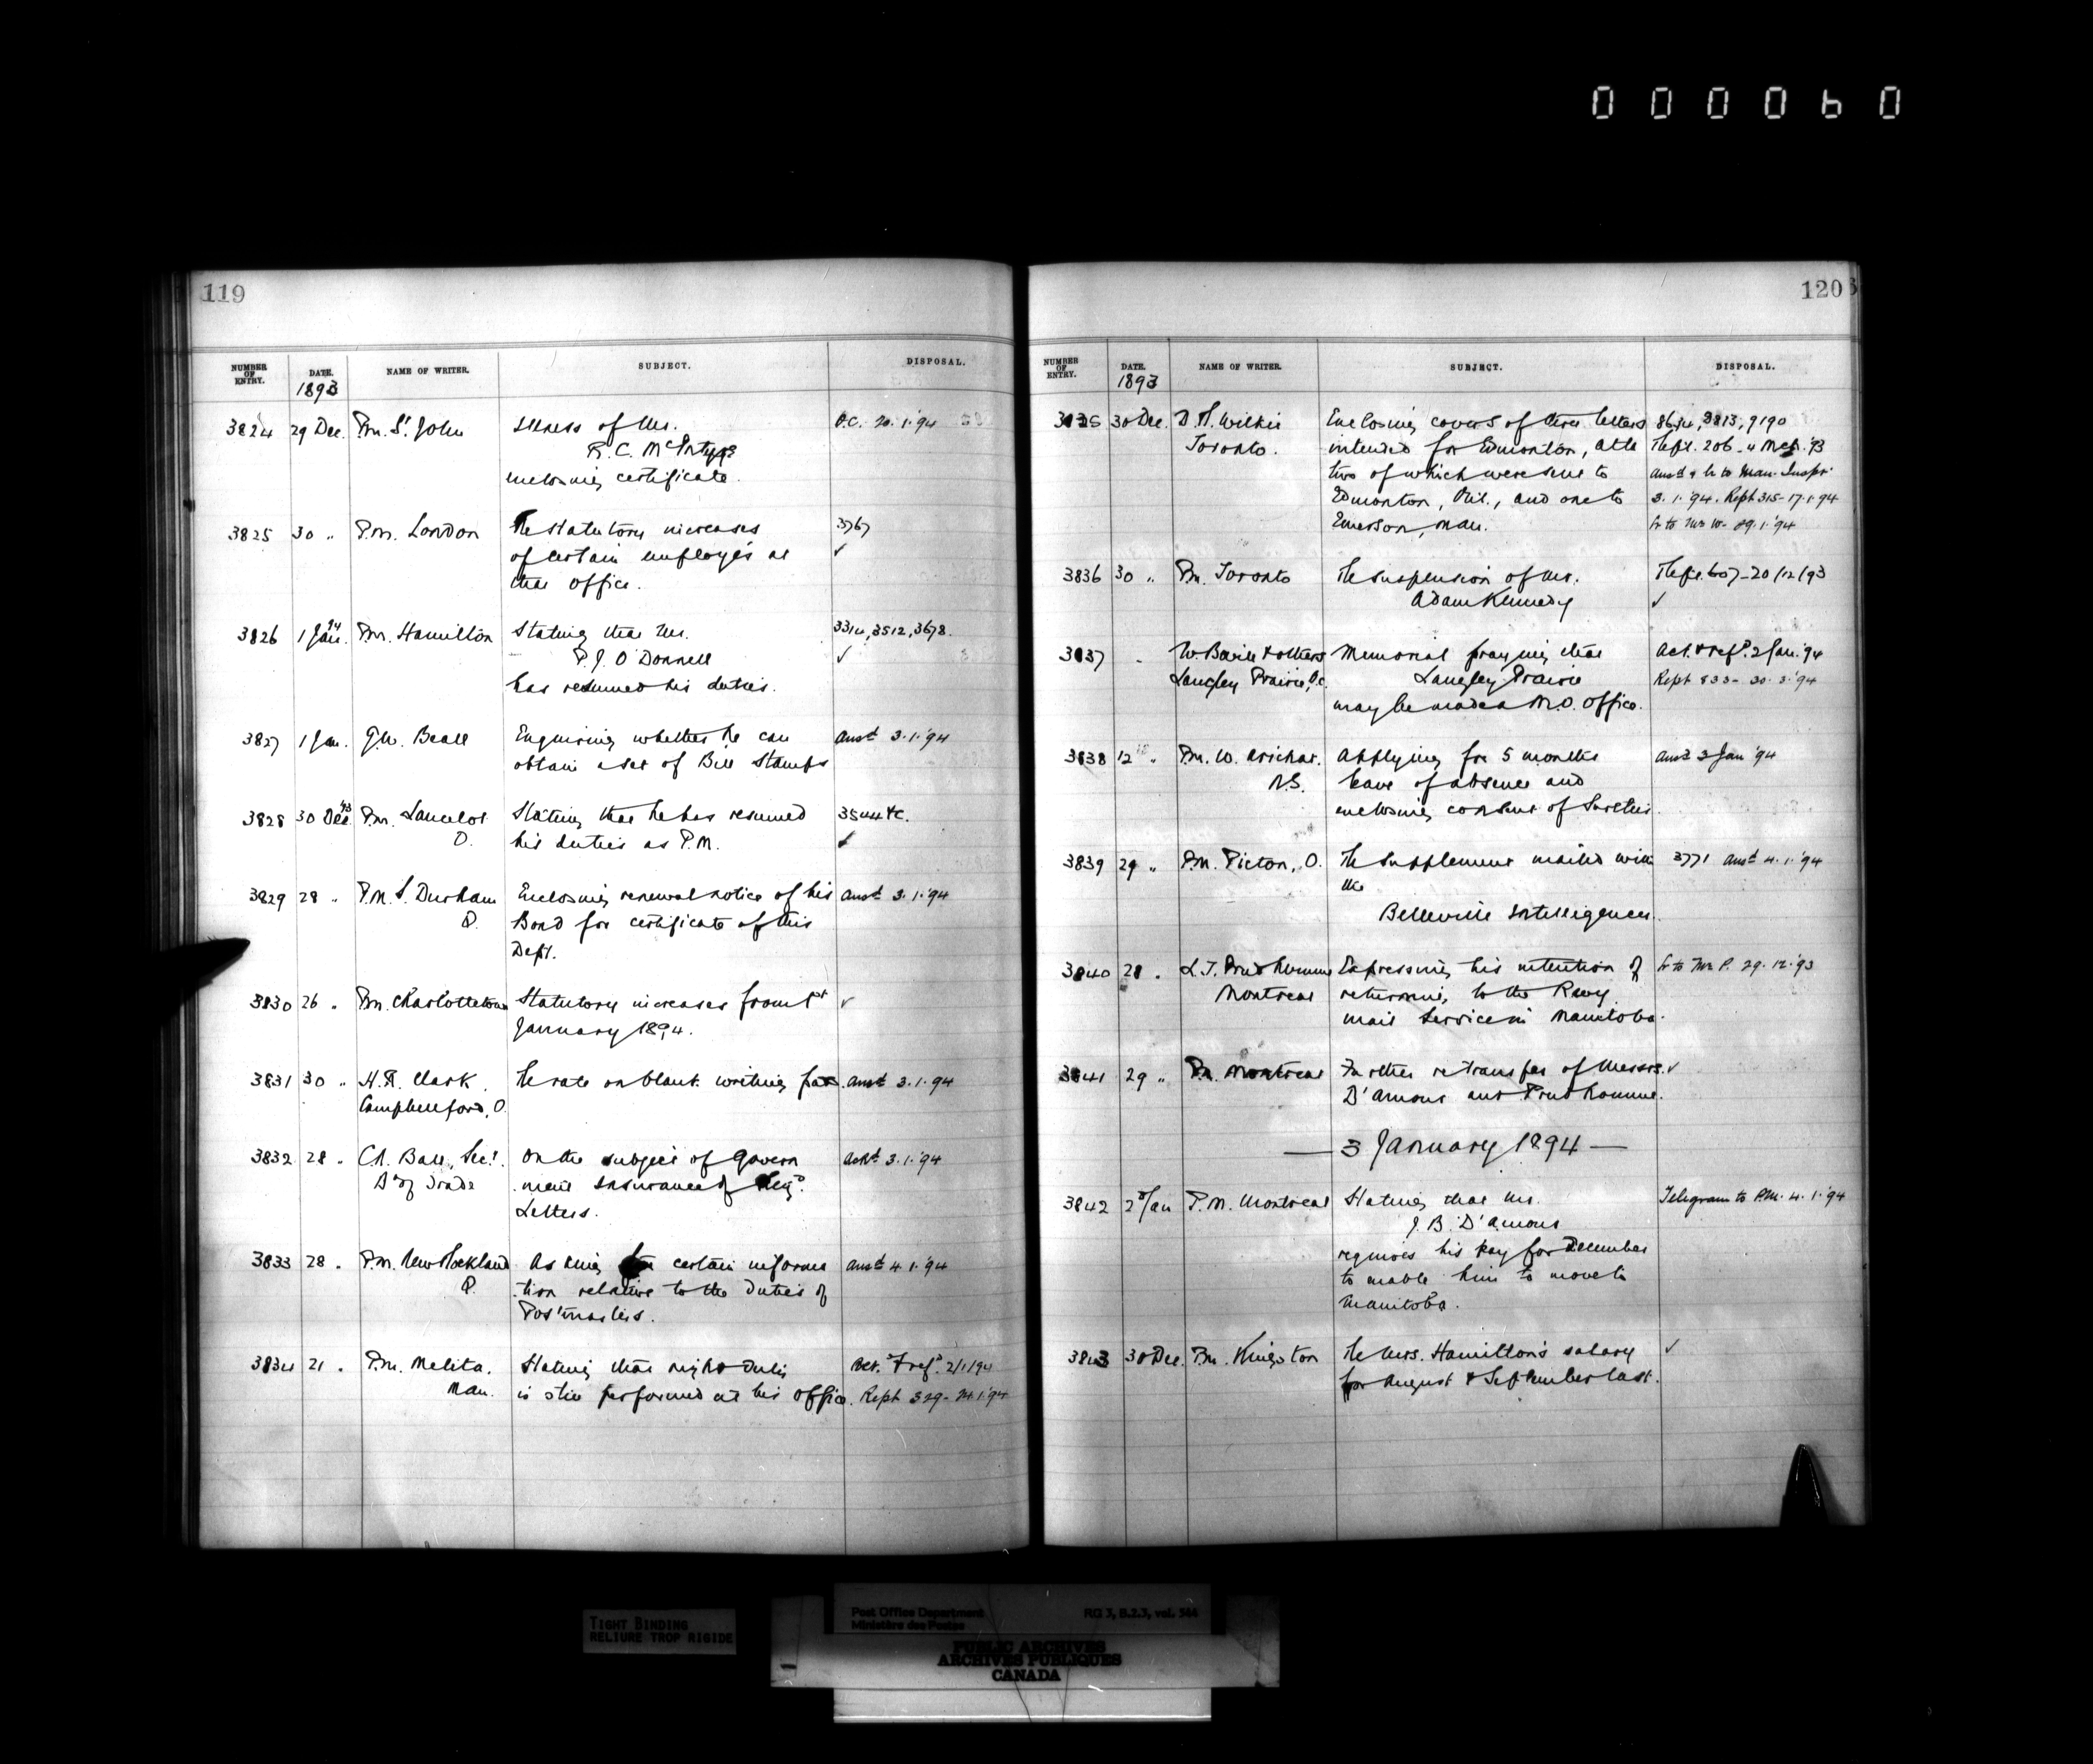 000060
119
NUMBER OF ENTRY. DATE. NAME OF WRITER. SUBJECT. DISPOSAL.
1893
3824 29 Dec. P.m. St. John Illness of Mr. O.C. 20.1.'94
R. C. McIntyre
enclosing certificate.
3825 30 " P.m. London The statutory increases 3767
of certain employés at ✓
that office.
3826 1 Jan. '94 P.m. Hamilton Stating that Mr. 3314, 3512, 3678.
P. J. O'Donnell ✓
has resumed his duties.
3827 1 Jan. G.W. Beall Enquiring whether he can Ansd 3.1.'94
obtain a set of Bill Stamps
3828 30 Dec. '93 P.m. Lancelot Stating that he has resumed 3544 &c.
O. his duties as P.M. ✓
3829 28 " P.M. S. Durham Enclosing renewal notice of his Ansd 3.1.'94
Q. Bond for certificate of this
Dept.
3830 26 " P.m. Charlottetown Statutory increases from 1st ✓
January 1894.
3831 30 " H.R. Clark, The rate on blank writing pads. Ansd 3.1.94
Campbellford, O.
3832 28 " C.A. Ball, Sec. On the subject of Govern Ackd 3.1.'94
Bd of Trade ment Insurance of Regd.
Letters.
3833 28 " P.m. New Rockland Asking for certain informa Ansd 4.1.'94
Q. tion relative to the duties of
Postmasters.
3834 21 " P.m. Melita, Stating that night duty Act. & refd. 2/1/94
Man. is still performed at his office. Rept 329-24.1.'94
120
NUMBER OF ENTRY. DATE. NAME OF WRITER. SUBJECT. DISPOSAL.
1893
3835 30 Dec. D. R. Wilkie Enclosing covers of three letters 8813, 9190
Toronto. intended for Edmonton, Alta Rept. 206
two of which were sent to Ansd & lr to Man. Inspr.
Edmonton, Ont., and one to 3.1.'94. Rept 315-17.1.94
Emerson, Man. Lr to Mr W. 29.1.'94
3836 30 " P.m. Toronto The suspension of Mr. Rept. 607-20/12/93
Adam Kennedy ✓
3837 " W. & others Memorial praying that Act. & refd. 2 Jan. '94
Langley Prairie, B.C. Langley Prairie Rept 833-30.3.'94
may be made a M.O. Office.
3838 12 " P.m. W. Arichat. Applying for 5 months Ansd 3 Jan '94
N.S. leave of absence and
enclosing consent of Sureties.
3839 29 " P.M. Picton, O. The supplement mailed with 3771 Ansd 4.1.'94
the
Belleville Intelligencer.
3840 28 " L.J. Prudhomme Expressing his intention of Lr to Mr P. 29.12.'93
Montreal returning to the Rwy.
mail service in Manitoba.
3841 29 " P.m. Montreal Further re transfer of Messrs. ✓
D'Amour and Prudhomme.
— 3 January 1894 —
3842 2 Jan P.M. Montreal Stating that Mr. Telegram to P.M. 4.1.'94
J. B. D'Amour
requires his pay for December
to enable him to move to
Manitoba.
3843 30 Dec. P.m. Kingston The Mrs. Hamilton's salary ✓
for August & September last.
TIGHT BINDING
RELIURE TROP RIGIDE
Post Office Department RG 3, B.2.3, vol. 344
Ministère des Postes
PUBLIC ARCHIVES
ARCHIVES PUBLIQUES
CANADA